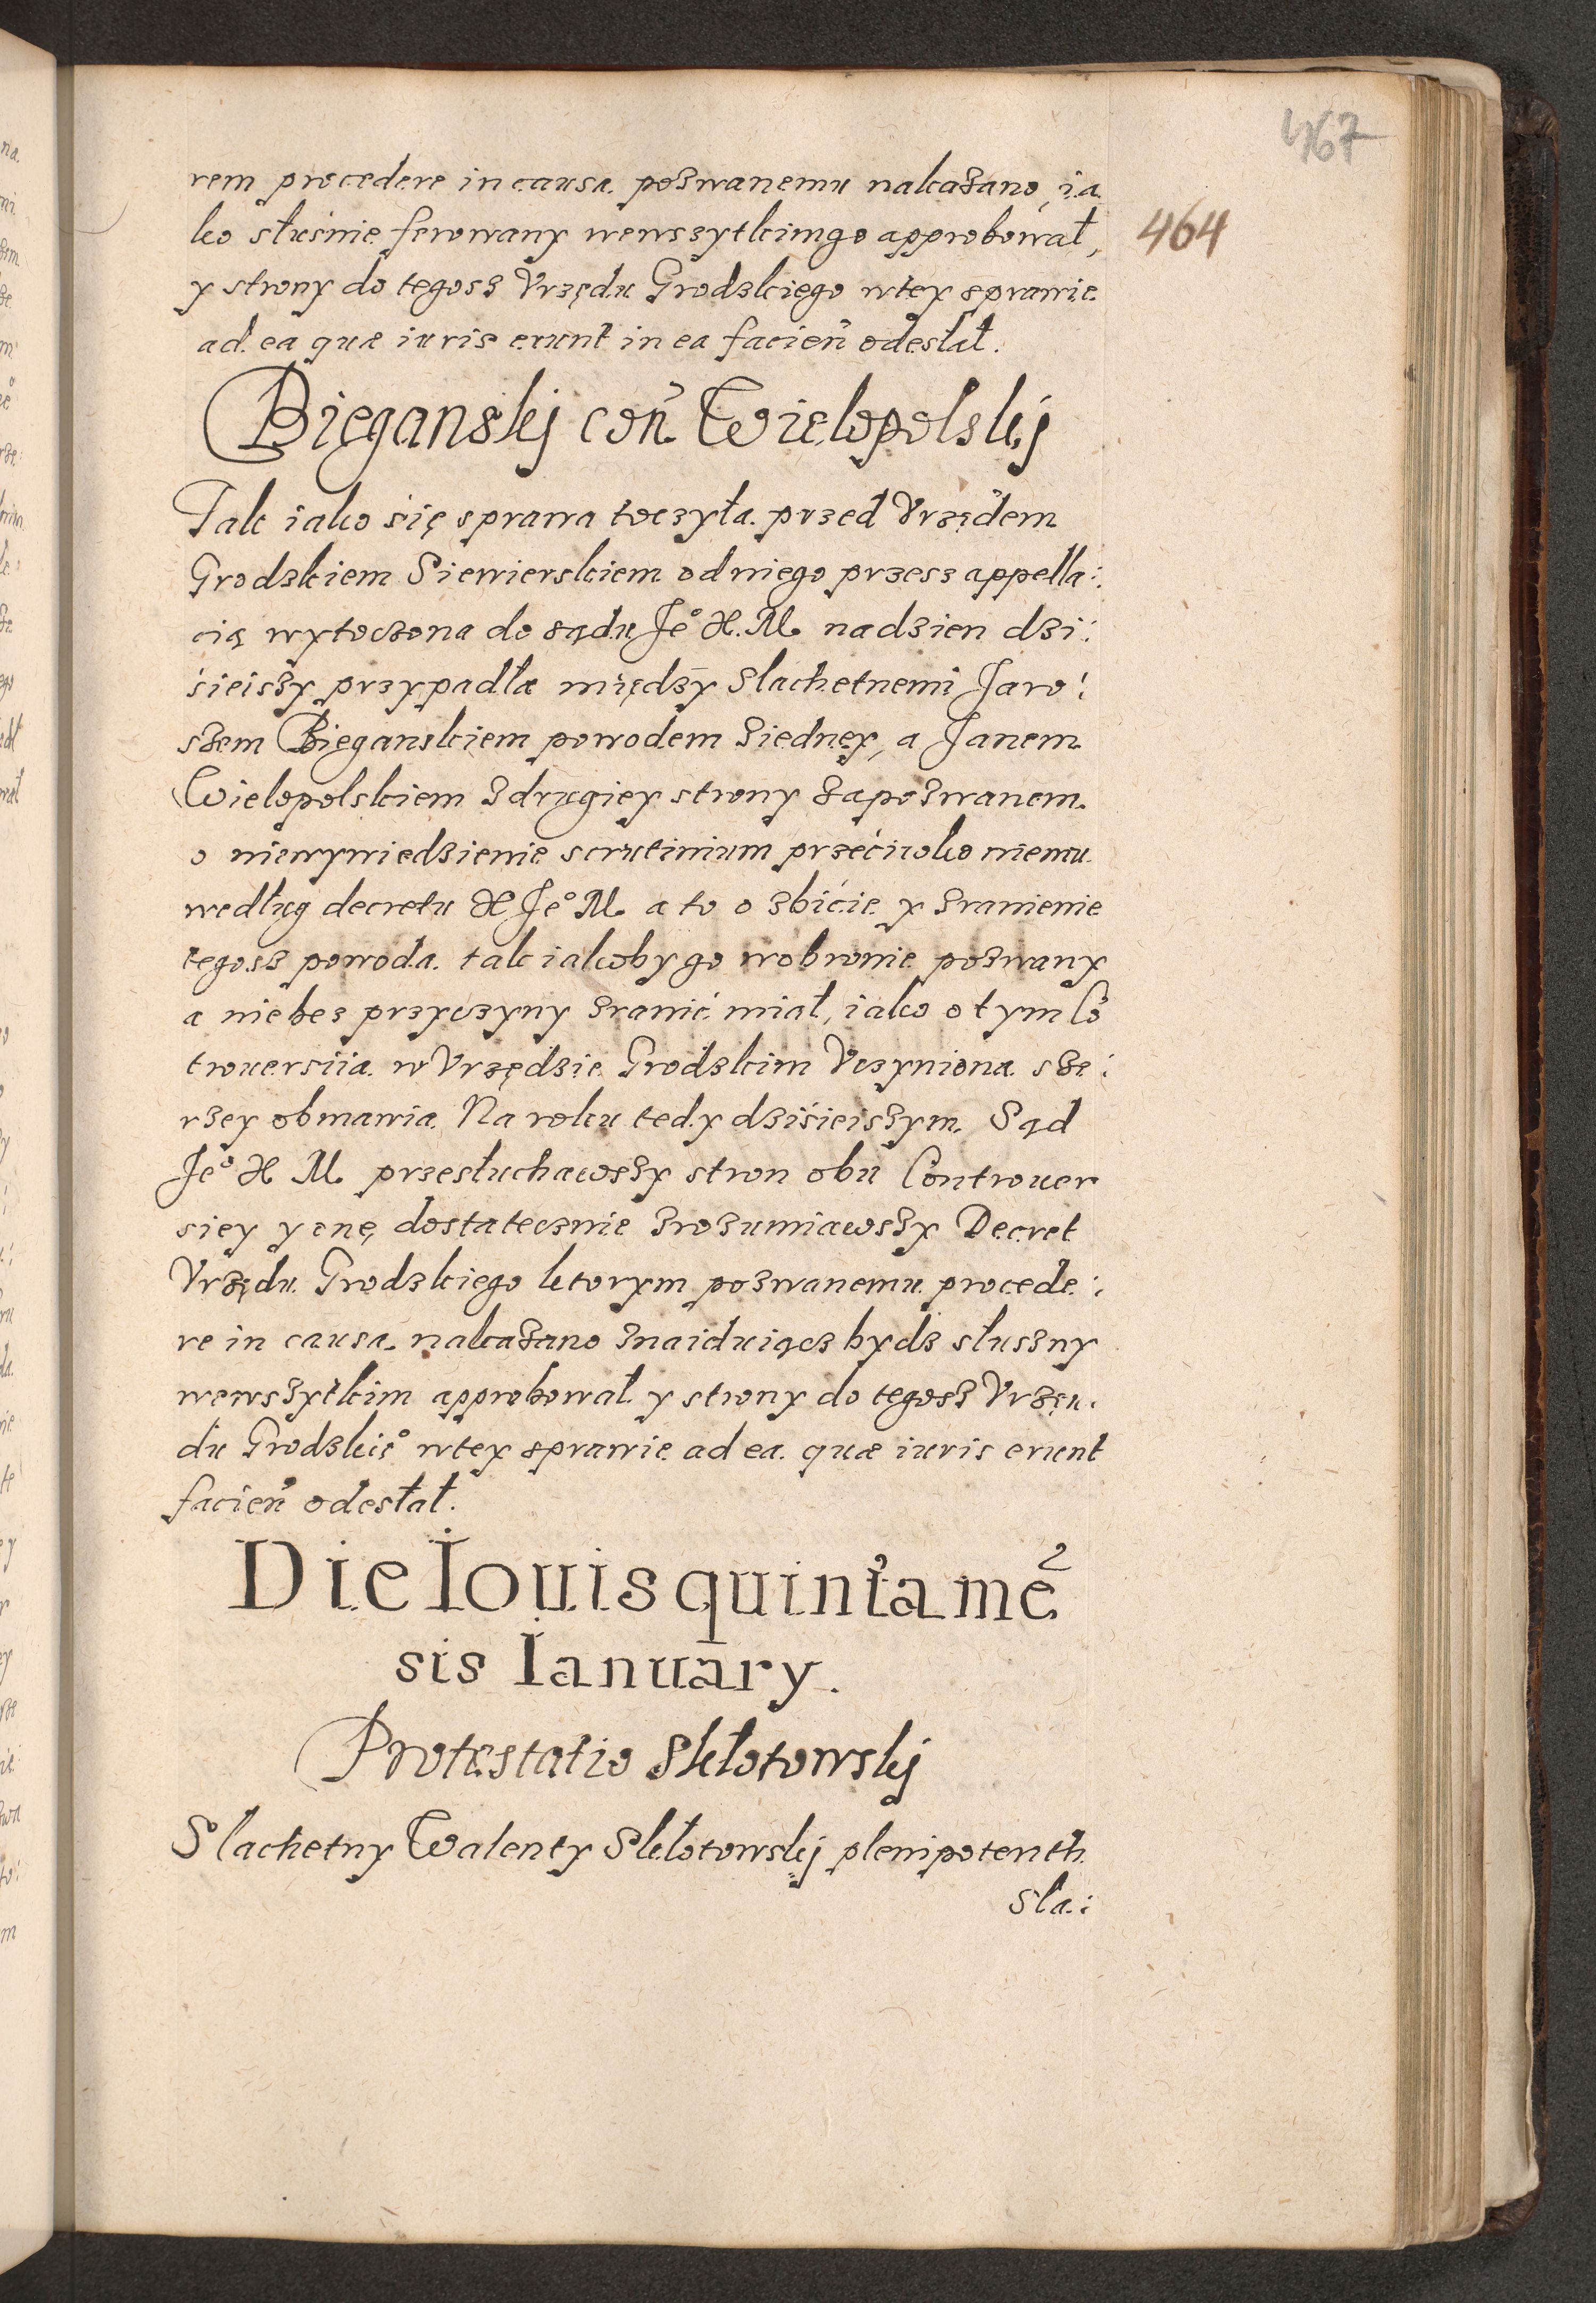 467
rem procedere in causa pozwanemu nakazano, ia
ko słuśnie ferowany wewszytkimgo approbował,
y strony do tegosz Vrzędu Grodzkiego wtey sprawie
ad ea quæ iuris erunt in ea facień odesłał.
464
Bieganskij coñ Wielopolskij
Tak iako się sprawa toczyła przed Vrzędem
Grodzkiem Siewierskiem odniego przesz appella:
cią wytoczona do sądu Jeº X. M. nadzien dzi:
sieiszy przypadła między Slachetnemi Jaro:
szem Bieganskiem powodem ziedney, a Janem
Wielopolskiem zdrugiey strony zapozwanem
o niewywiedzienie scrutinium przećiwko niemu
według decretu X Jeº M. a to o zbićie y zranienie
tegosz powoda tak iakoby go wobronie pozwany
a niebez przyczyny zranić miał, iako o tym Cõ
trouersiia w Vrzędzie Grodzkim Vczyniona sze:
rzey obmawia Na roku tedy dziśieiszym Sąd
Jeº X M. przesłuchawszy stron obu Controuer
siey y onę dostatecznie zrozumiawszy Decret
Vrzędu Grodzkiego ktorym pozwanemu procede:
re in causa nakazano znaiduiącz bydz słuszny
wewszytkim approbował y strony do tegosz Vrzęn:
du Grodzkieº wtey sprawie ad ea quæ iuris erunt
facień odesłał.
Die Iouis quinta mẽ
sis Ianuary.
Protestatio Skłotowskij
Slachetny Walenty Skłotowskij plenipotenth
Sla: